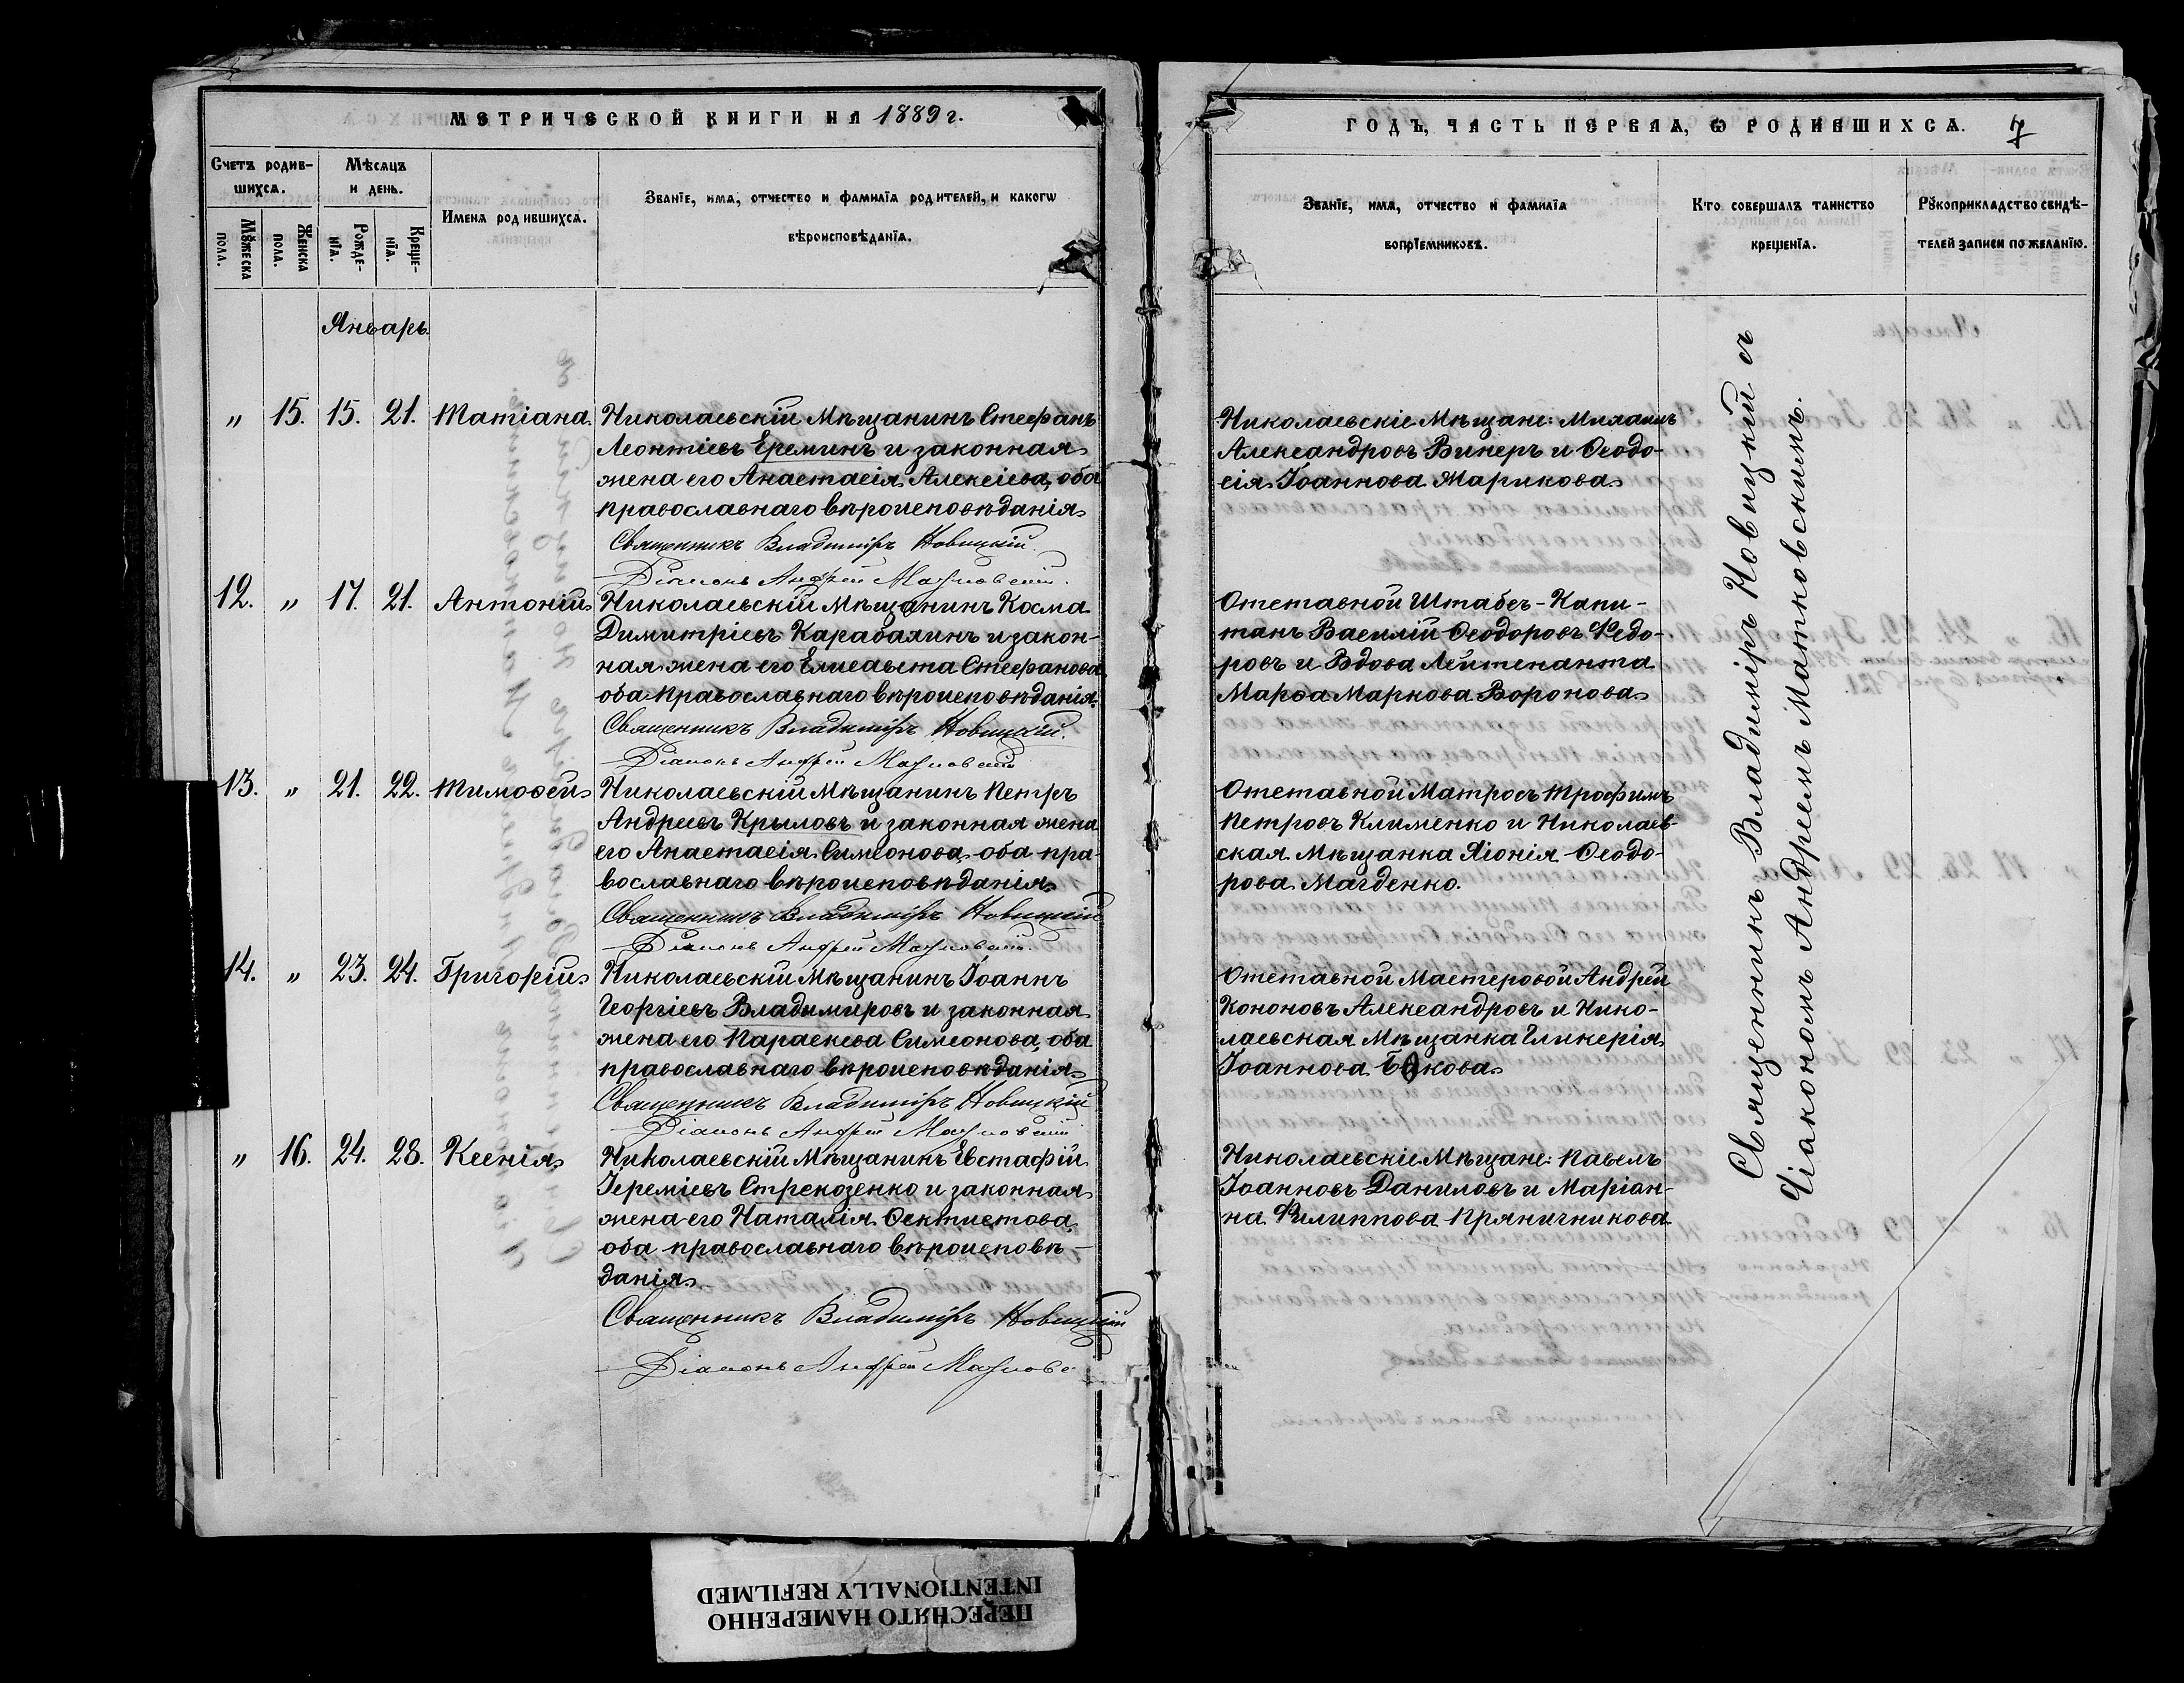 МЕТРИЧЕСКОЙ КНИГИ НА 1889 г.
Счетъ родив-
шихсѧ.
Мѣсѧцъ
и день.
Мꙋжеска
пола.
Женска
пола.
Рожде-
нїѧ.
Креще-
нїѧ.
Имена родившихсѧ.
Званїе, имѧ, отчество и фамилїѧ родителей, и какогѡ
вѣроисповѣданїѧ.
Январь.
„ 15. 15. 21. Татіана.
Николаевскій Мѣщанинъ Стефанъ
Леонтіевъ Ереминъ и законная
жена его Анастасія Алексіева, оба
православнаго вѣроисповѣданія
Священникъ Владиміръ Новицкій
Діаконъ Андрей
12. „ 17. 21. Антоній
Николаевскій Мѣщанинъ Косма
Димитріевъ Карабалинъ и закон-
ная жена его Елисавета Стефанова
оба православнаго вѣроисповѣданія.
Священникъ Владиміръ Новицкій.
Діаконъ Андрей
13. „ 21. 22. Тимоѳей
Николаевскій Мѣщанинъ Петръ
Андреевъ Крыловъ и законная жена
его Анастасія Симеонова оба пра-
вославнаго вѣроисповѣданія
Священникъ Владиміръ Новицкій
Діаконъ Андрей
14. „ 23. 24. Григорій
Николаевскій Мѣщанинъ Іоаннъ
Георгіевъ Владимировъ и законная
жена его Параскева Симеонова, оба
православнаго вѣроисповѣданія
Священникъ Владиміръ Новицкій
Діаконъ Андрей
„ 16. 24. 28. Ксенія
Николаевскій Мѣщанинъ Евстафій
Іереміевъ Стрекозенко и законная
жена его Наталія Ѳектистова,
оба православнаго вѣроисповѣ-
данія
Священникъ Владиміръ Новицкій
Діаконъ Андрей
ГОДЪ, ЧАСТЬ ПЕРВАѦ, Ѡ РОДИВШИХСѦ. 7
Званїе, имѧ, отчество и фамилїѧ
воспрїемниковъ.
Кто совершалъ таинство
крещенїѧ.
Рꙋкоприкладство свидѣ-
телей записи по желанїю.
Николаевскіе Мѣщане: Михаилъ
Александровъ Винеръ и Ѳеодо-
сія Іоаннова Марикова
Отставной Штабсъ-Капи-
танъ Василій Ѳеодоровъ Федо-
ровъ и Вдова Лейтенанта
Марѳа Маркова Воронова
Отставной Матросъ Трофимъ
Петровъ Клименко и Николаев-
ская Мѣщанка Хіонія Ѳеодо-
рова Магденко.
Отставной Мастеровой Андрей
Кононовъ Александровъ и Нико-
лаевская Мѣщанка Гликерія
Іоаннова
Николаевскіе Мѣщане: Павелъ
Іоанновъ Даниловъ и Маріан-
на Филиппова Пряничникова
Священникъ Владиміръ Новицкій съ
Діакономъ Андреемъ Матковскимъ.
ПЕРЕСНЯТО НАМЕРЕННО
INTENTIONALLY REFILMED